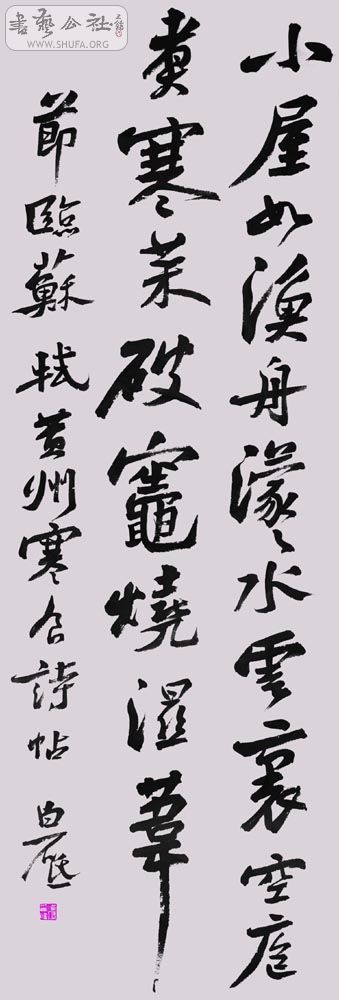 小屋如漁舟濛々水雲裏空庖
煮寒菜破竈燒濕葦
節臨蘇軾黄州寒食詩帖 白砥
書藝公社
WWW.SHUFA.ORG